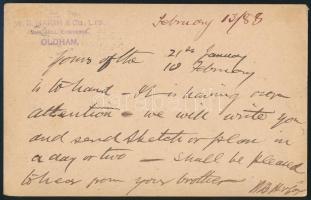 February 13/88
OLDHAM,
Yours of the 21st January
10 February
is to hand - It is having our
attention - we will write you
and send Sketch or plan in
a day or two - shall be pleased
to hear from your brother